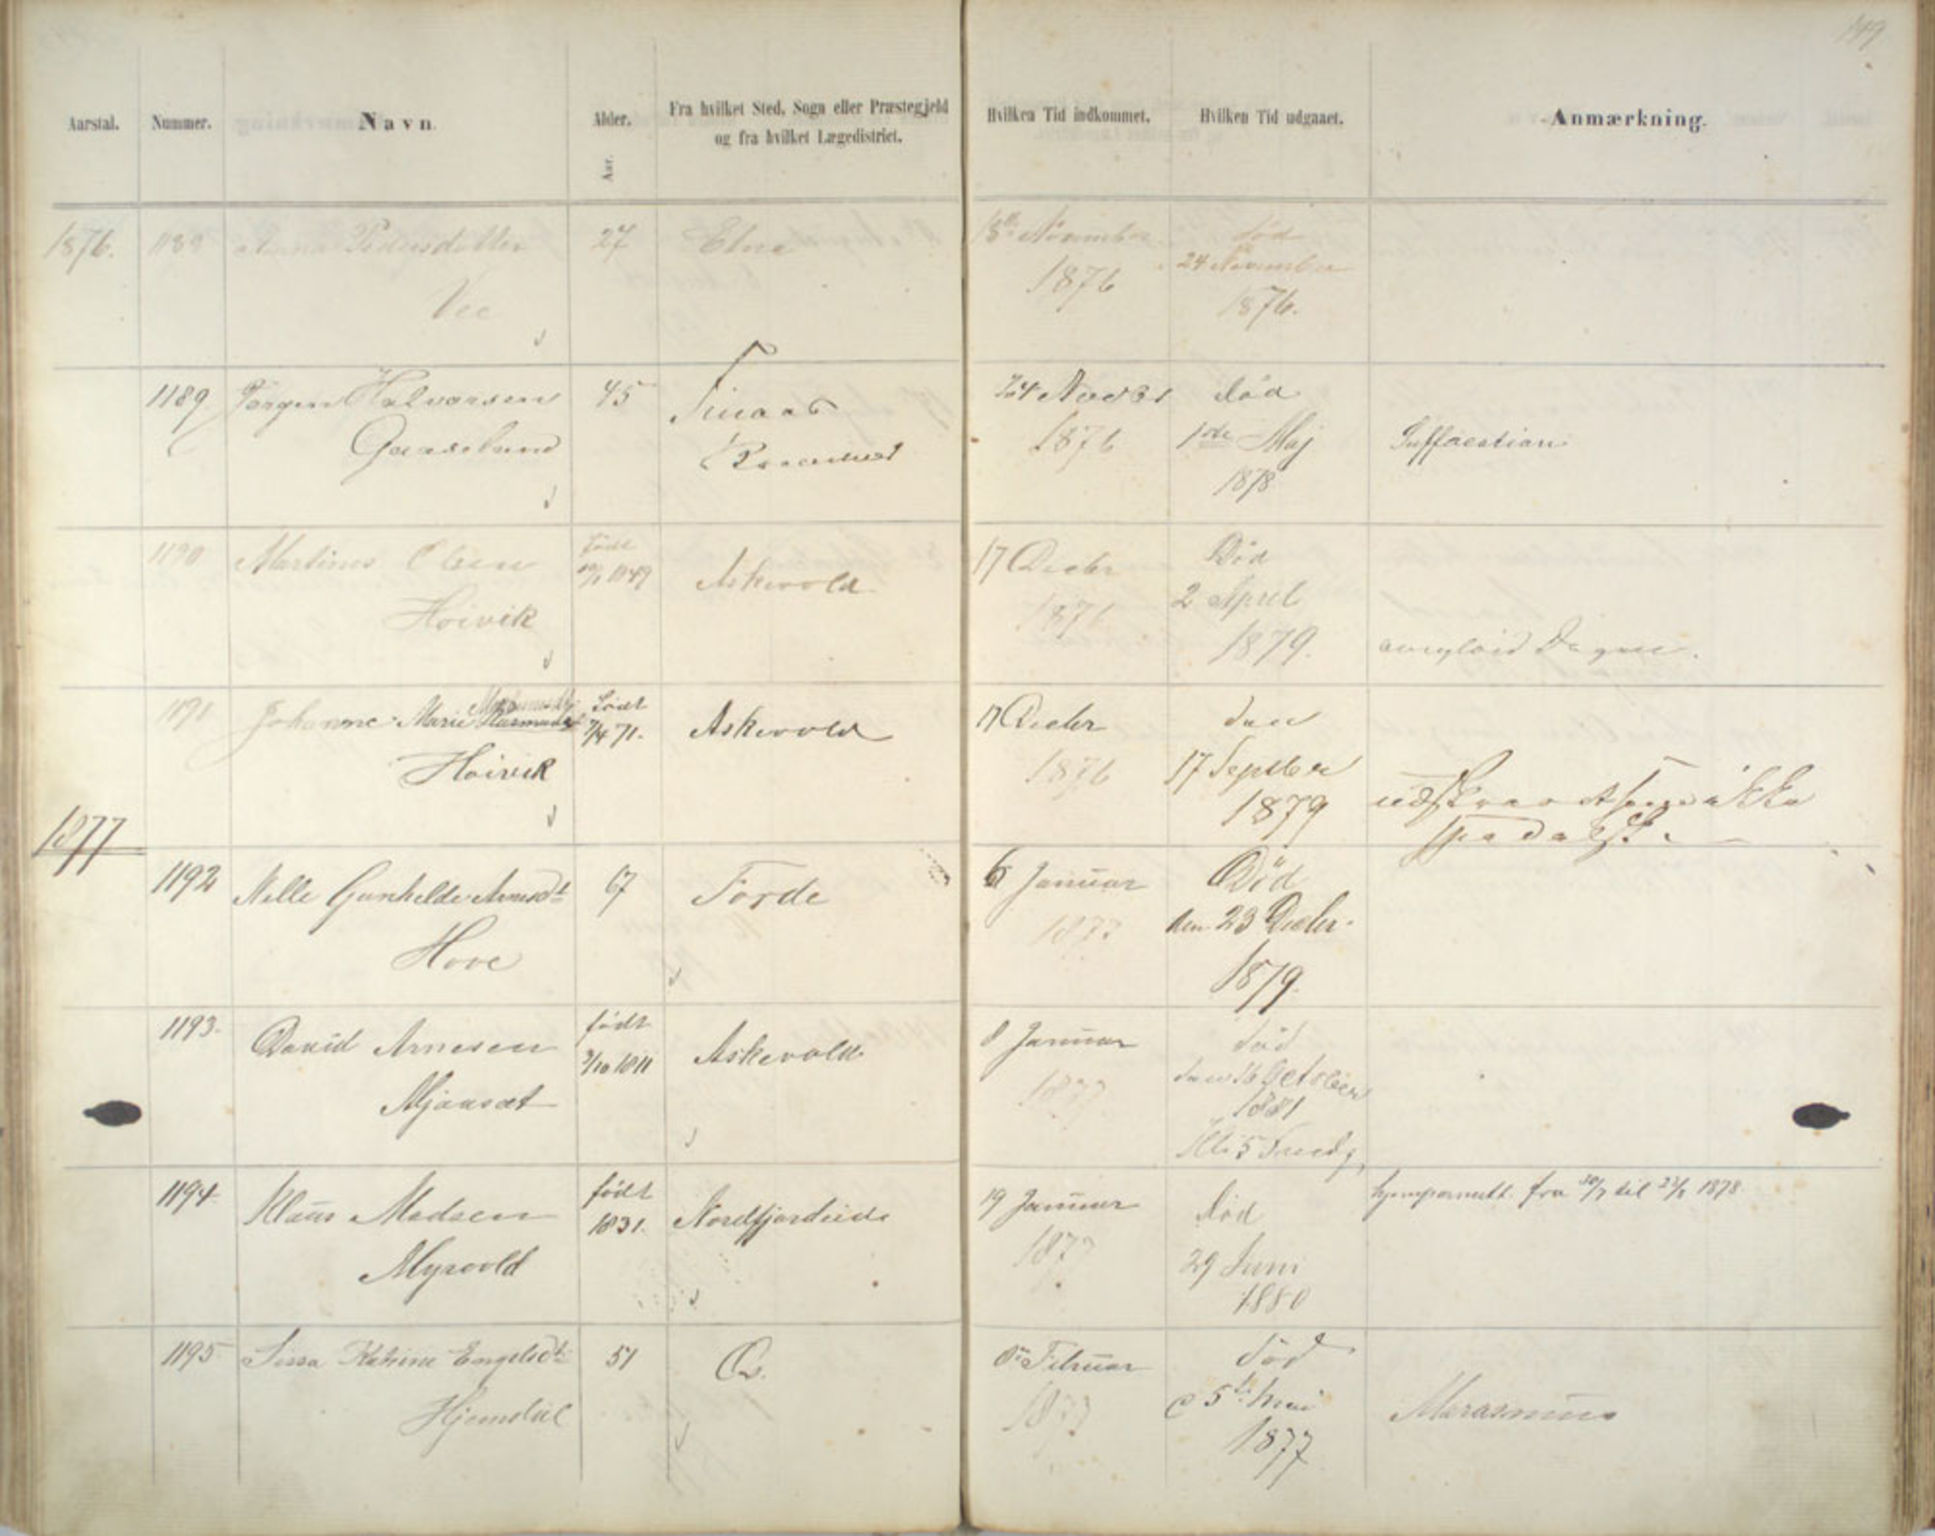 149
Aarstal. Nummer. Navn. Alder. Fra hvilket Sted, Sogn eller Præstegjeld Hvilken Tid indkommet. Hvilken Tid udgaaet. Anmærkning.
Aar. og fra hvilket Lægedistrict.
1876. 1188 Anna Pedersdatter 27 Etne 18de November død
Vee 1876 24 November
1876.
1189 Jørgen Halvorsen 45 Finaas 24 Novbr død
1876 1de Maj Suffocation
1878
1190 Martinus Olsen født Askevold 17 Decbr Død
Hoivik 1849 1876 2 April
1879. amyloid Degen.
1191 Johanne Marie Rasmusdt født Askevold 17 Decbr den
Hoivik 7/4 71. 1876 17 Septber
1879 udskrevet som ikke
spedalsk.
1877
1192 Nille Gunhilde Arnesdt 67 Førde 6 Januar Død
Hove 1877 den 23 Decbr.
1879.
1193. David Arnesen født Askevold 8 Januar død
Mjaaset 3/10 1811 1877 den 16 October
1881
Kl. 5
1194. Klaus Madsen født Nordfjordeide 19 Januar død hjempermitt. fra 30/7 til 23/8 1878.
Myrvold 1831. 1877 29 Juni
1880
1195 Sissa Katrine Engelsdt 51 Os. 8de Februar død
Hjemdal 1877 5te Mai Marasmus
1877